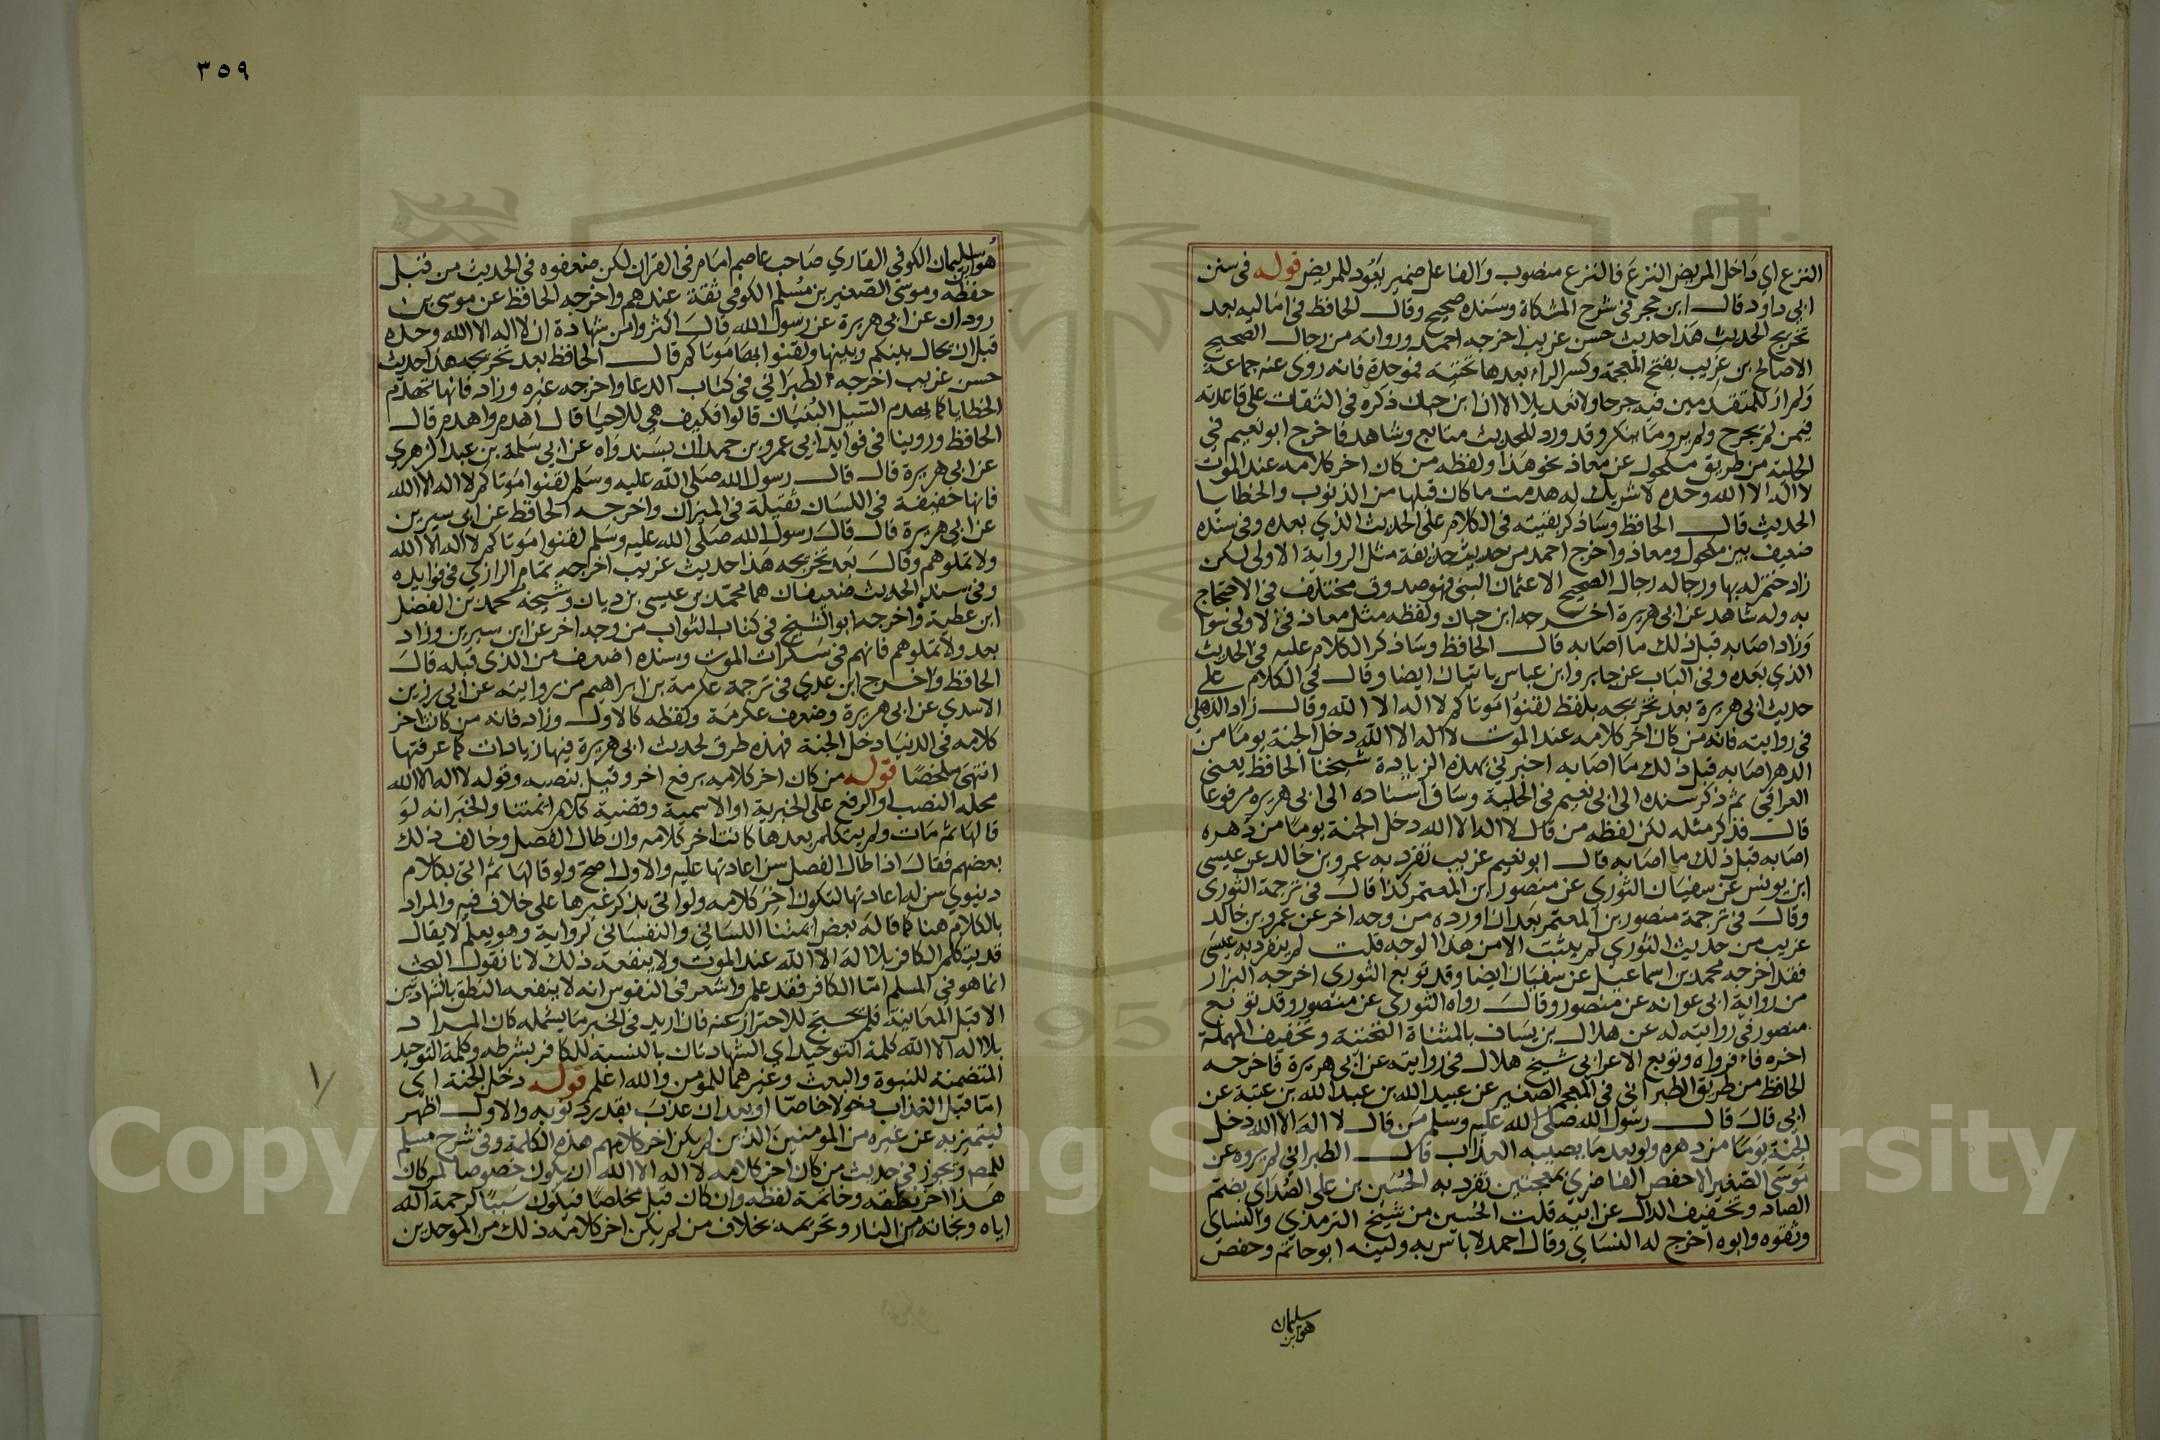 ٣٥٩
النزع اي داخل المريض النزع فالنزع منصوب والفاعل ضمير يعود للمريض قوله في سنن
ابي داود قال ابن حجر في شرح المشكاة وسنده صحيح وقال الحافظ في اماليه بعد
تخريج الحديث هذا حديث حسن غريب اخرجه احمد ورواته من رجال الصحيح
الا صالح بن غريب بفتح المعجمة وكسر الراء بعدها تحتية فموحدة فانه روى عنه جماعة
ولم ار للمتقدمين فيه جرحا ولا تعديلا الا ان ابن حبان ذكره في الثقات على قاعدته
فيمن لم يجرح ولم يرو ما ينكر وقد ورد للحديث متابع وشاهد فاخرج ابو نعيم في
الحلية من طريق مكحول عن معاذ نحو هذا ولفظه من كان اخر كلامه عند الموت
لا اله الا الله وحده لا شريك له هدمت ما كان قبلها من الذنوب والخطايا
الحديث قال الحافظ وساذكر بقيته في الكلام على الحديث الذي بعده وفي سنده
ضعيف بين مكحول ومعاذ واخرج احمد من حديث حذيفة مثل الرواية الاولى لكن
زاد ختم له بها ورجاله رجال الصحيح الا عثمان البتي فهو صدوق مختلف في الاحتجاج
به وله شاهد عن ابي هريرة اخرجه ابن حبان ولفظه مثل معاذ في الاولى سوا
وزاد اصابه قبل ذلك ما اصابه قال الحافظ وساذكر الكلام عليه في الحديث
الذي بعده وفي الباب عن جابر وابن عباس ياتيان ايضا وقال في الكلام على
حديث ابي هريرة بعد تخريجه بلفظ لقنوا موتاكم لا اله الا الله وقال زاد الذهلي
في روايته فانه من كان اخر كلامه عند الموت لا اله الا الله دخل الجنة يوما من
الدهر اصابه قبل ذلك ما اصابه اخبرني بهذه الزيادة شيخنا الحافظ يعني
العراقي ثم ذكر سنده الى ابي نعيم في الحلية وساق اسناده الى ابي هريرة مرفوعا
قال فذكر مثله لكن لفظه من قال لا اله الا الله دخل الجنة يوما من دهره
اصابه قبل ذلك ما اصابه قال ابو نعيم غريب تفرد به عمرو بن خالد عن عيسى
ابن يونس عن سفيان الثوري عن منصور بن المعتمر كذا قال في ترجمة الثوري
وقال في ترجمة منصور بن المعتمر بعد ان اورده من وجه اخر عن عمرو بن خالد
غريب من حديث الثوري لم يثبت الا من هذا الوجه قلت لم ينفرد به عيسى
فقد اخرجه محمد بن اسماعيل عن سفيان ايضا وقد توبع الثوري اخرجه البزار
من رواية ابي عوانه عن منصور وقال رواه الثوري عن منصور وقد توبع
منصور في روايته له عن هلال بن يساف بالمثناة التحتية وتخفيف المهملة
اخره فاء فرواه وتوبع الاعرابي شيخ هلال في روايته عن ابي هريرة فاخرجه
الحافظ من طريق الطبراني في المعجم الصغير عن عبيد الله بن عبد الله بن عتبة عن
ابي قال قال رسول الله صلى الله عليه وسلم من قال لا اله الا الله دخل
الجنة يوما من دهره ولو بعد ما يصيبه العذاب قال الطبراني لم يروه عن
موسى الصغير الا حفص الغاضري بمعجمتين تفرد به الحسين بن علي الصدائي بضم
الصاد وتخفيف الدال عن ابيه قلت الحسين من شيخ الترمذي والنسائ
وثقوه وابوه اخرج له النسائ وقال احمد لا باس به ولينه ابو حاتم وحفص
هو ابن سليمان
هو ابن سليمان الكوفي القاري صاحب عاصم امام في القران لكن ضعفوه في الحديث من قبل
حفظه وموسى الصغير بن مسلم الكوفي ثقة عندهم واخرجه الحافظ عن موسى بن
وردان عن ابي هريرة عن رسول الله قال اكثروا من شهادة ان لا اله الا الله وحده
قبل ان يحال بينكم وبينها ولقنوا ايضا موتاكم قال الحافظ بعد تخريجه هذا حديث
حسن غريب اخرجه الطبراني في كتاب الدعا واخرجه غيره وزاد فانها تهدم
الخطايا كما يهدم السيل البنيان قالوا فكيف هي للاحيا قال اهدم واهدم قال
الحافظ وروينا في فوايد ابي عمرو بن حمدان بسند واه عن ابي سلمة بن عبد الزهري
عن ابي هريرة قال قال رسول الله صلى الله عليه وسلم لقنوا موتاكم لا اله الا الله
فانها خفيفة في اللسان ثقيلة في الميزان واخرجه الحافظ عن ابن سيرين
عن ابي هريرة قال قال رسول الله صلى الله عليه وسلم لقنوا موتاكم لا اله الا الله
ولا تملوهم وقال بعد تخريجه هذا حديث غريب اخرجه تمام الرازي في فوايده
وفي سند الحديث ضعيفان هما محمد بن عيسى بن ديان وشيخه محمد بن الفضل
ابن عطية واخرجه ابو الشيخ في كتاب الثواب من وجه اخر عن ابن سيرين وزاد
بعد ولا تملوهم فانهم في سكرات الموت وسنده اضعف من الذي قبله قال
الحافظ واخرج ابن عدي في ترجمة عكرمة بن ابراهيم من روايته عن ابي رزين
الاسدي عن ابي هريرة وضعف عكرمة ولفظه كالاول وزاد فانه من كان اخر
كلامه في الدنيا دخل الجنة فهذه طرق لحديث ابي هريرة فيها زيادات كما عرفتها
انتهى ملخصا قوله من كان اخر كلامه برفع اخر وقيل بنصبه وقوله لا اله الا الله
محله النصب او الرفع على الخبرية او الاسمية وقضية كلام ائمتنا والخبر انه لو
قالها ثم مات ولم يتكلم بعدها كانت اخر كلامه وان طال الفصل وخالف ذلك
بعضهم فقال اذا طال الفصل سن اعادتها عليه والاول اصح ولو قالها ثم اتى بكلام
دنيوي سن له اعادتها لتكون اخر كلامه ولو اتى بذكر غيرها على خلاف فيه والمراد
بالكلام هنا كما قاله بعض ائمتنا اللساني والنفساني لرواية وهو يعلم لا يقال
قد يتكلم الكافر بلا اله الا الله عند الموت ولا ينفعه ذلك لانا نقول البحث
انما هو في المسلم اما الكافر فقد علم واشعر في النفوس انه لا ينفعه النطق بالشهادتين
الا قبل المعاينة فلم يحتج للاحتراز عنه فان اريد في الخبر ما يشمله كان المراد
بلا اله الا الله كلمة التوحيد اي الشهادتان بالنسبة للكافر بشرطه وكلمة التوحيد
المتضمنة للنبوة والبعث وغيرهما للمؤمن والله اعلم قوله دخل الجنة اي
اما قبل العذاب دخولا خاصا او بعد ان عذب بقدر ذنوبه والاول اظهر
ليتميز به عن غيره من المؤمنين الذين لم يكن اخر كلامهم هذه الكلمة وفي شرح مسلم
للمص ويجوز في حديث من كان اخر كلامه لا اله الا الله ان يكون خصوصا لمن كان
هذا اخر نطقه وخاتمة لفظه وان كان قبل مخلصا فيكون سببا لرحمة الله
اياه ونجاته من النار وتحريمه بخلاف من لم يكن اخر كلامه ذلك من الموحدين
Copyright © King Saud University
957